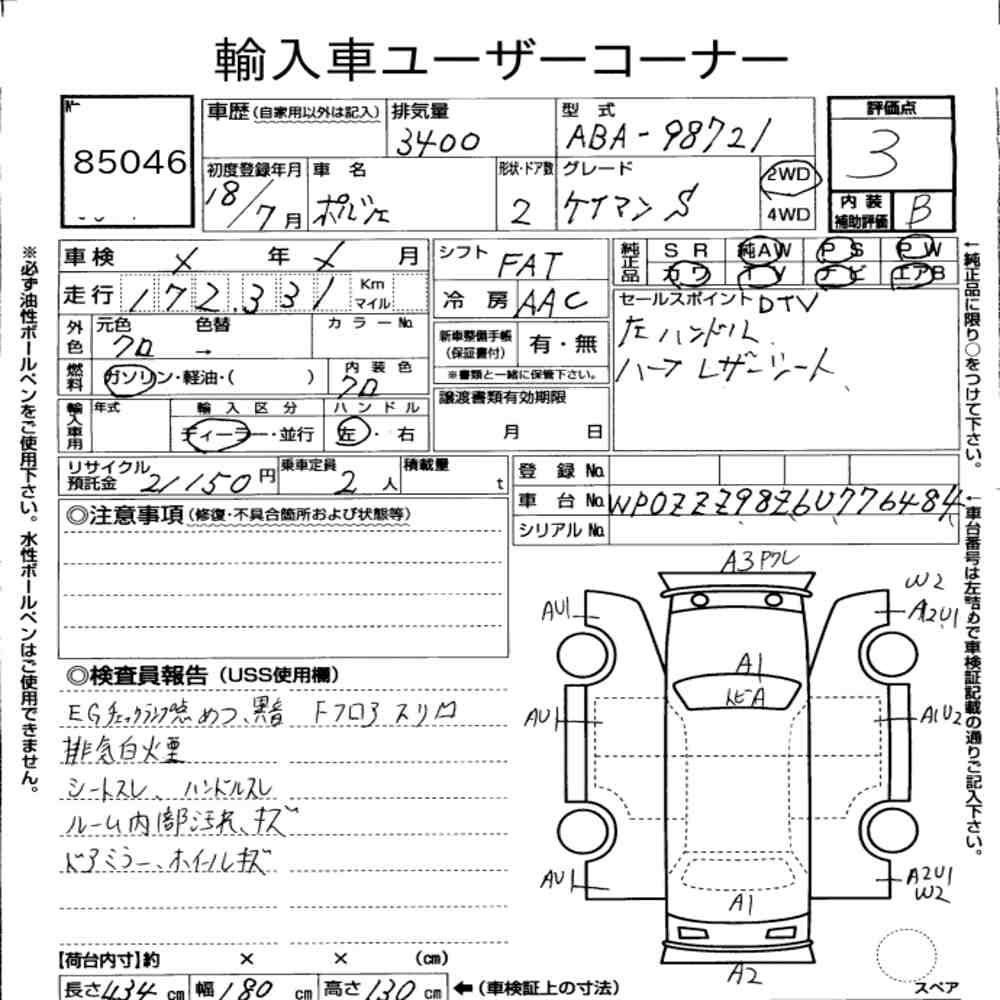 輸入車ユーザーコーナー
№
85046
車歴 (自家用以外は記入)
排気量
3400
型 式
ABA-98721
評価点
3
初度登録年月
18/7月
車 名
ポルシェ
形状・ドア数
2
グレード
ケイマン S
2WD
4WD
内 装
補助評価
B
車検 × 年 × 月
シフト
FAT
純正品
SR 純AW PS PW
カワ TV ナビ エアB
走行 172,331 Km
マイル
冷 房 AAC
セールスポイント DTV
左ハンドル
ハーフレザーシート
外色
元色 色替 カラー№
クロ →
新車整備手帳
(保証書付)
有・無
※書類と一緒に保管下さい。
燃料
ガソリン・軽油・( )
内 装 色
クロ
譲渡書類有効期限
月 日
輸入車用
年式
輸 入 区 分
ハ ン ド ル
ディーラー・並行
左・右
リサイクル
預託金
21150円
乗車定員
2人
積載量
t
登 録 №
車 台 № WP0ZZZ98Z6U776484
シリアル №
◎注意事項 (修復・不具合箇所および状態等)
◎検査員報告 (USS使用欄)
EGチェックランプ
Fフロアスリ
排気白火亜
シートスレ、ハンドルスレ
ルーム内部汚れ、キズ
ドアミラー、ホイールキズ
A3ワレ
AU1
W2
A2U1
A1
トビA
AU1
A1U2
AU1
A2U1
W2
A1
A2
スペア
【荷台内寸】約 × × (cm)
長さ434cm 幅180cm 高さ130cm ←(車検証上の寸法)
※必ず油性ボールペンをご使用下さい。水性ボールペンはご使用できません。
←純正品に限り○をつけて下さい。
←車台番号は左詰めで車検証記載の通りご記入下さい。